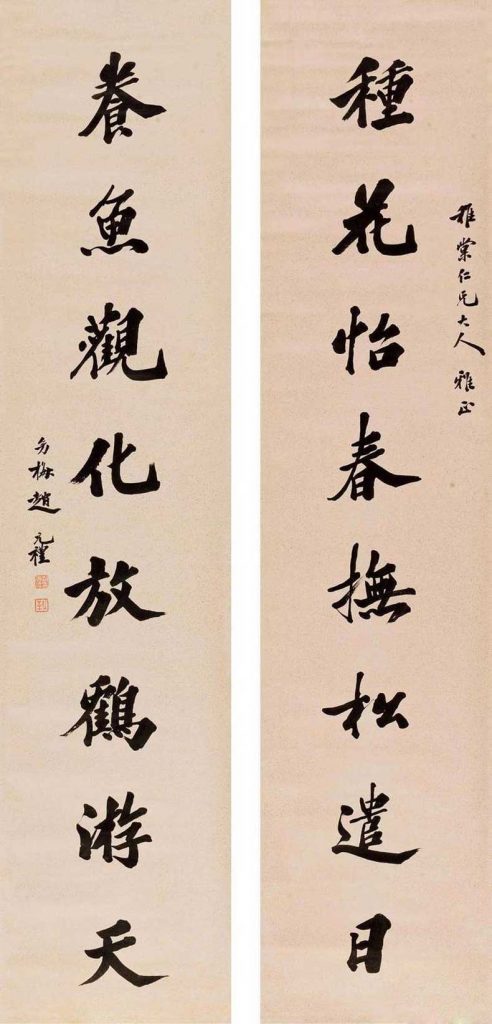 稚棠仁兄大人 雅正
種花怡春撫松遣日
養魚觀化放鶴游天
幼梅趙元禮